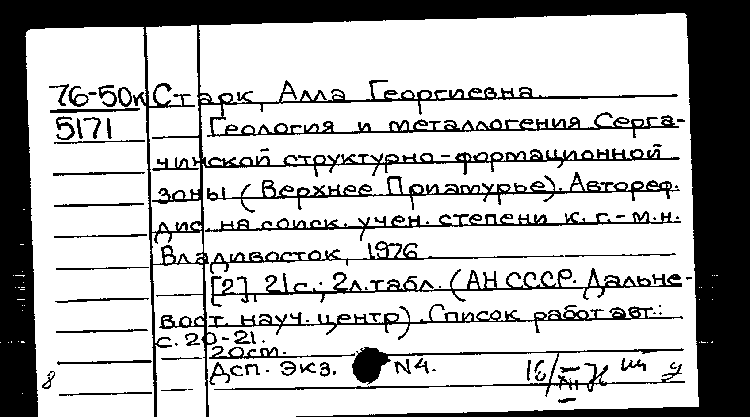 76-50к Старк, Алла Георгиевна.
5171 Геология и металлогения Серга-
чинской структурно-формационной
зоны (Верхнее Приамурье). Автореф.
дис. на соиск. учен. степени к. г.-м.н.
Владивосток, 1976.
[2], 21 с.; 2 л. табл. (АН СССР. Дальне-
вост. науч. центр). Список работ авт.:
с. 20-21.
20 см.
Дсп. Экз. N4.
8 16/XII